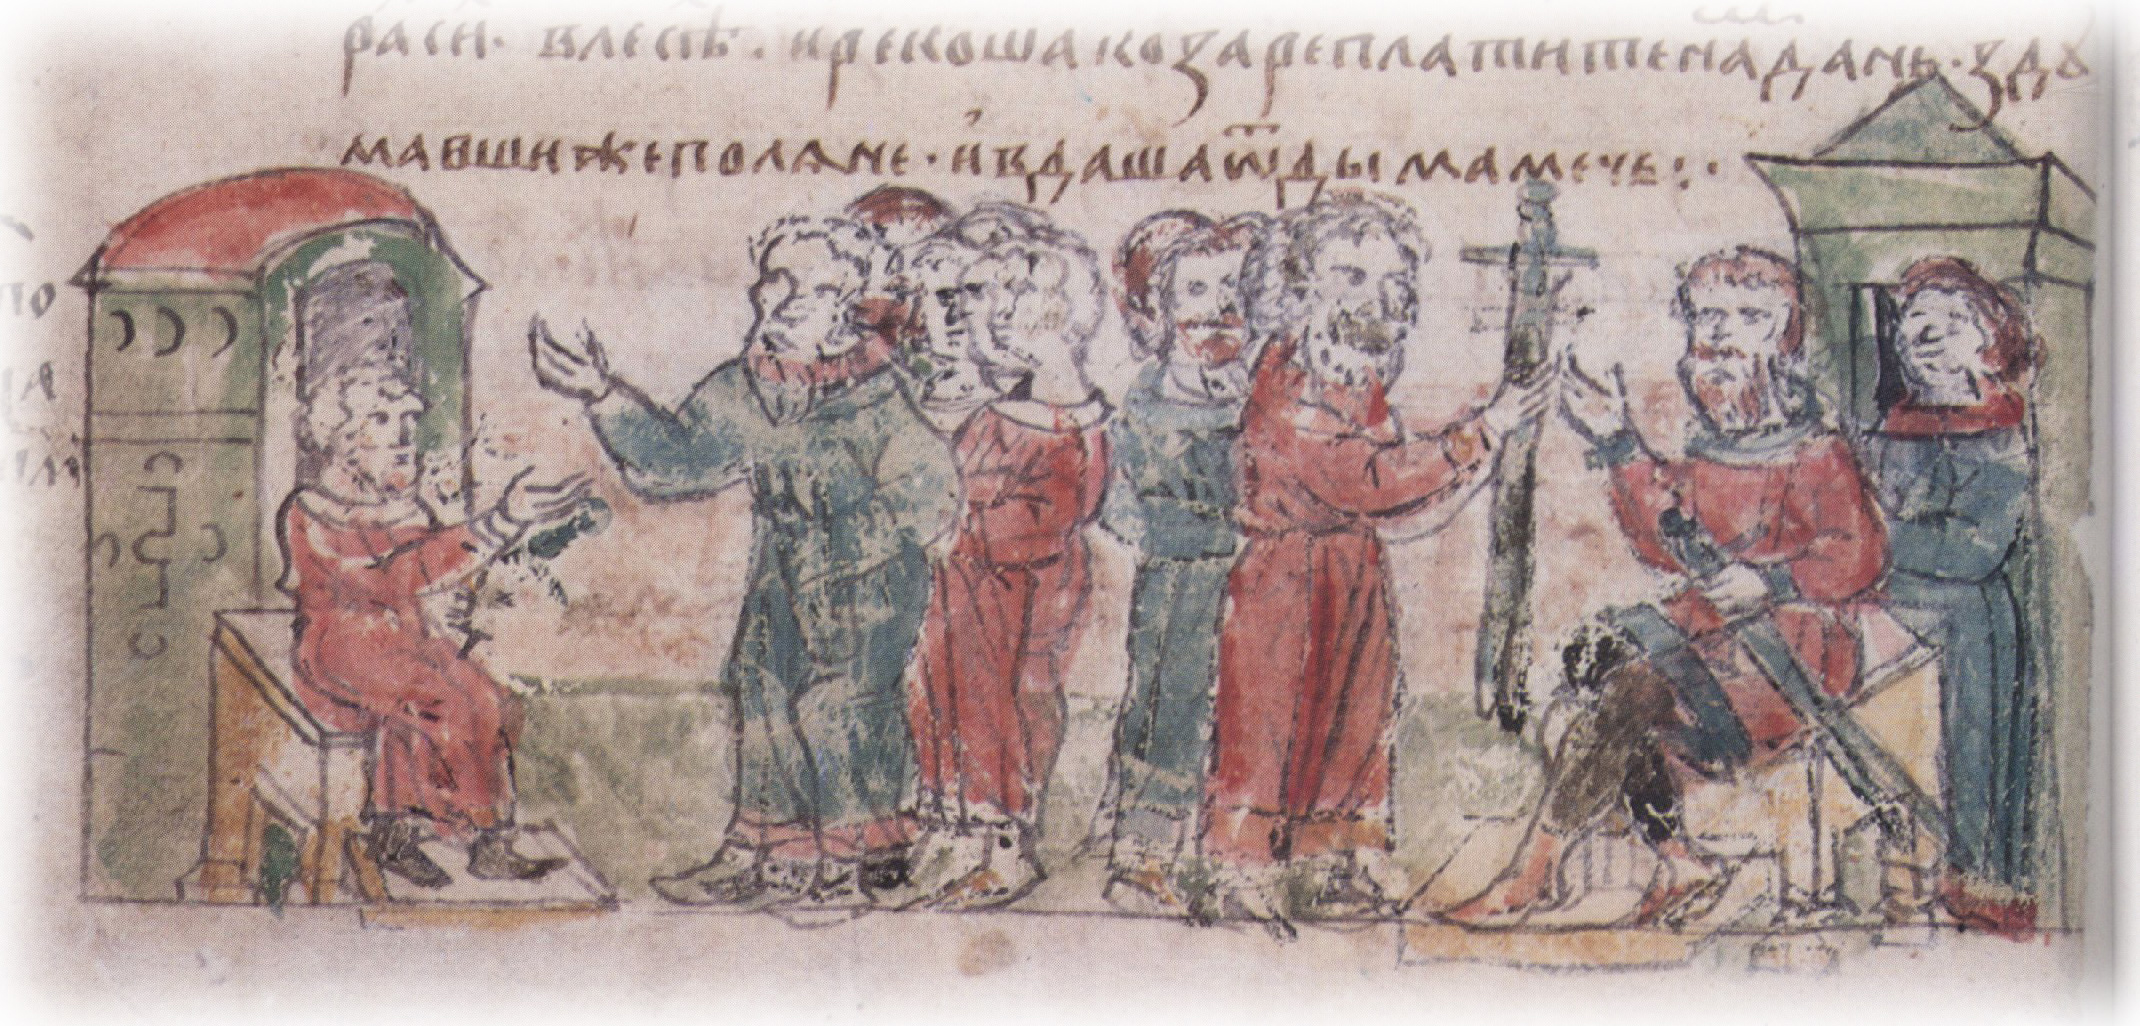 раси· влесѣ· ирекошакозареплатитенадань·здꙋ
мавшижеполѧне·ивдашаѿдымамечь:·
по